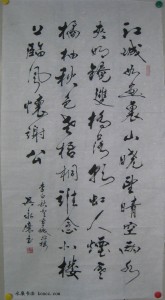 江城如畫裏山曉望晴空兩水
夾明鏡雙橋落彩虹人煙寒
橘柚秋色老梧桐誰念北樓
上臨風懷謝公